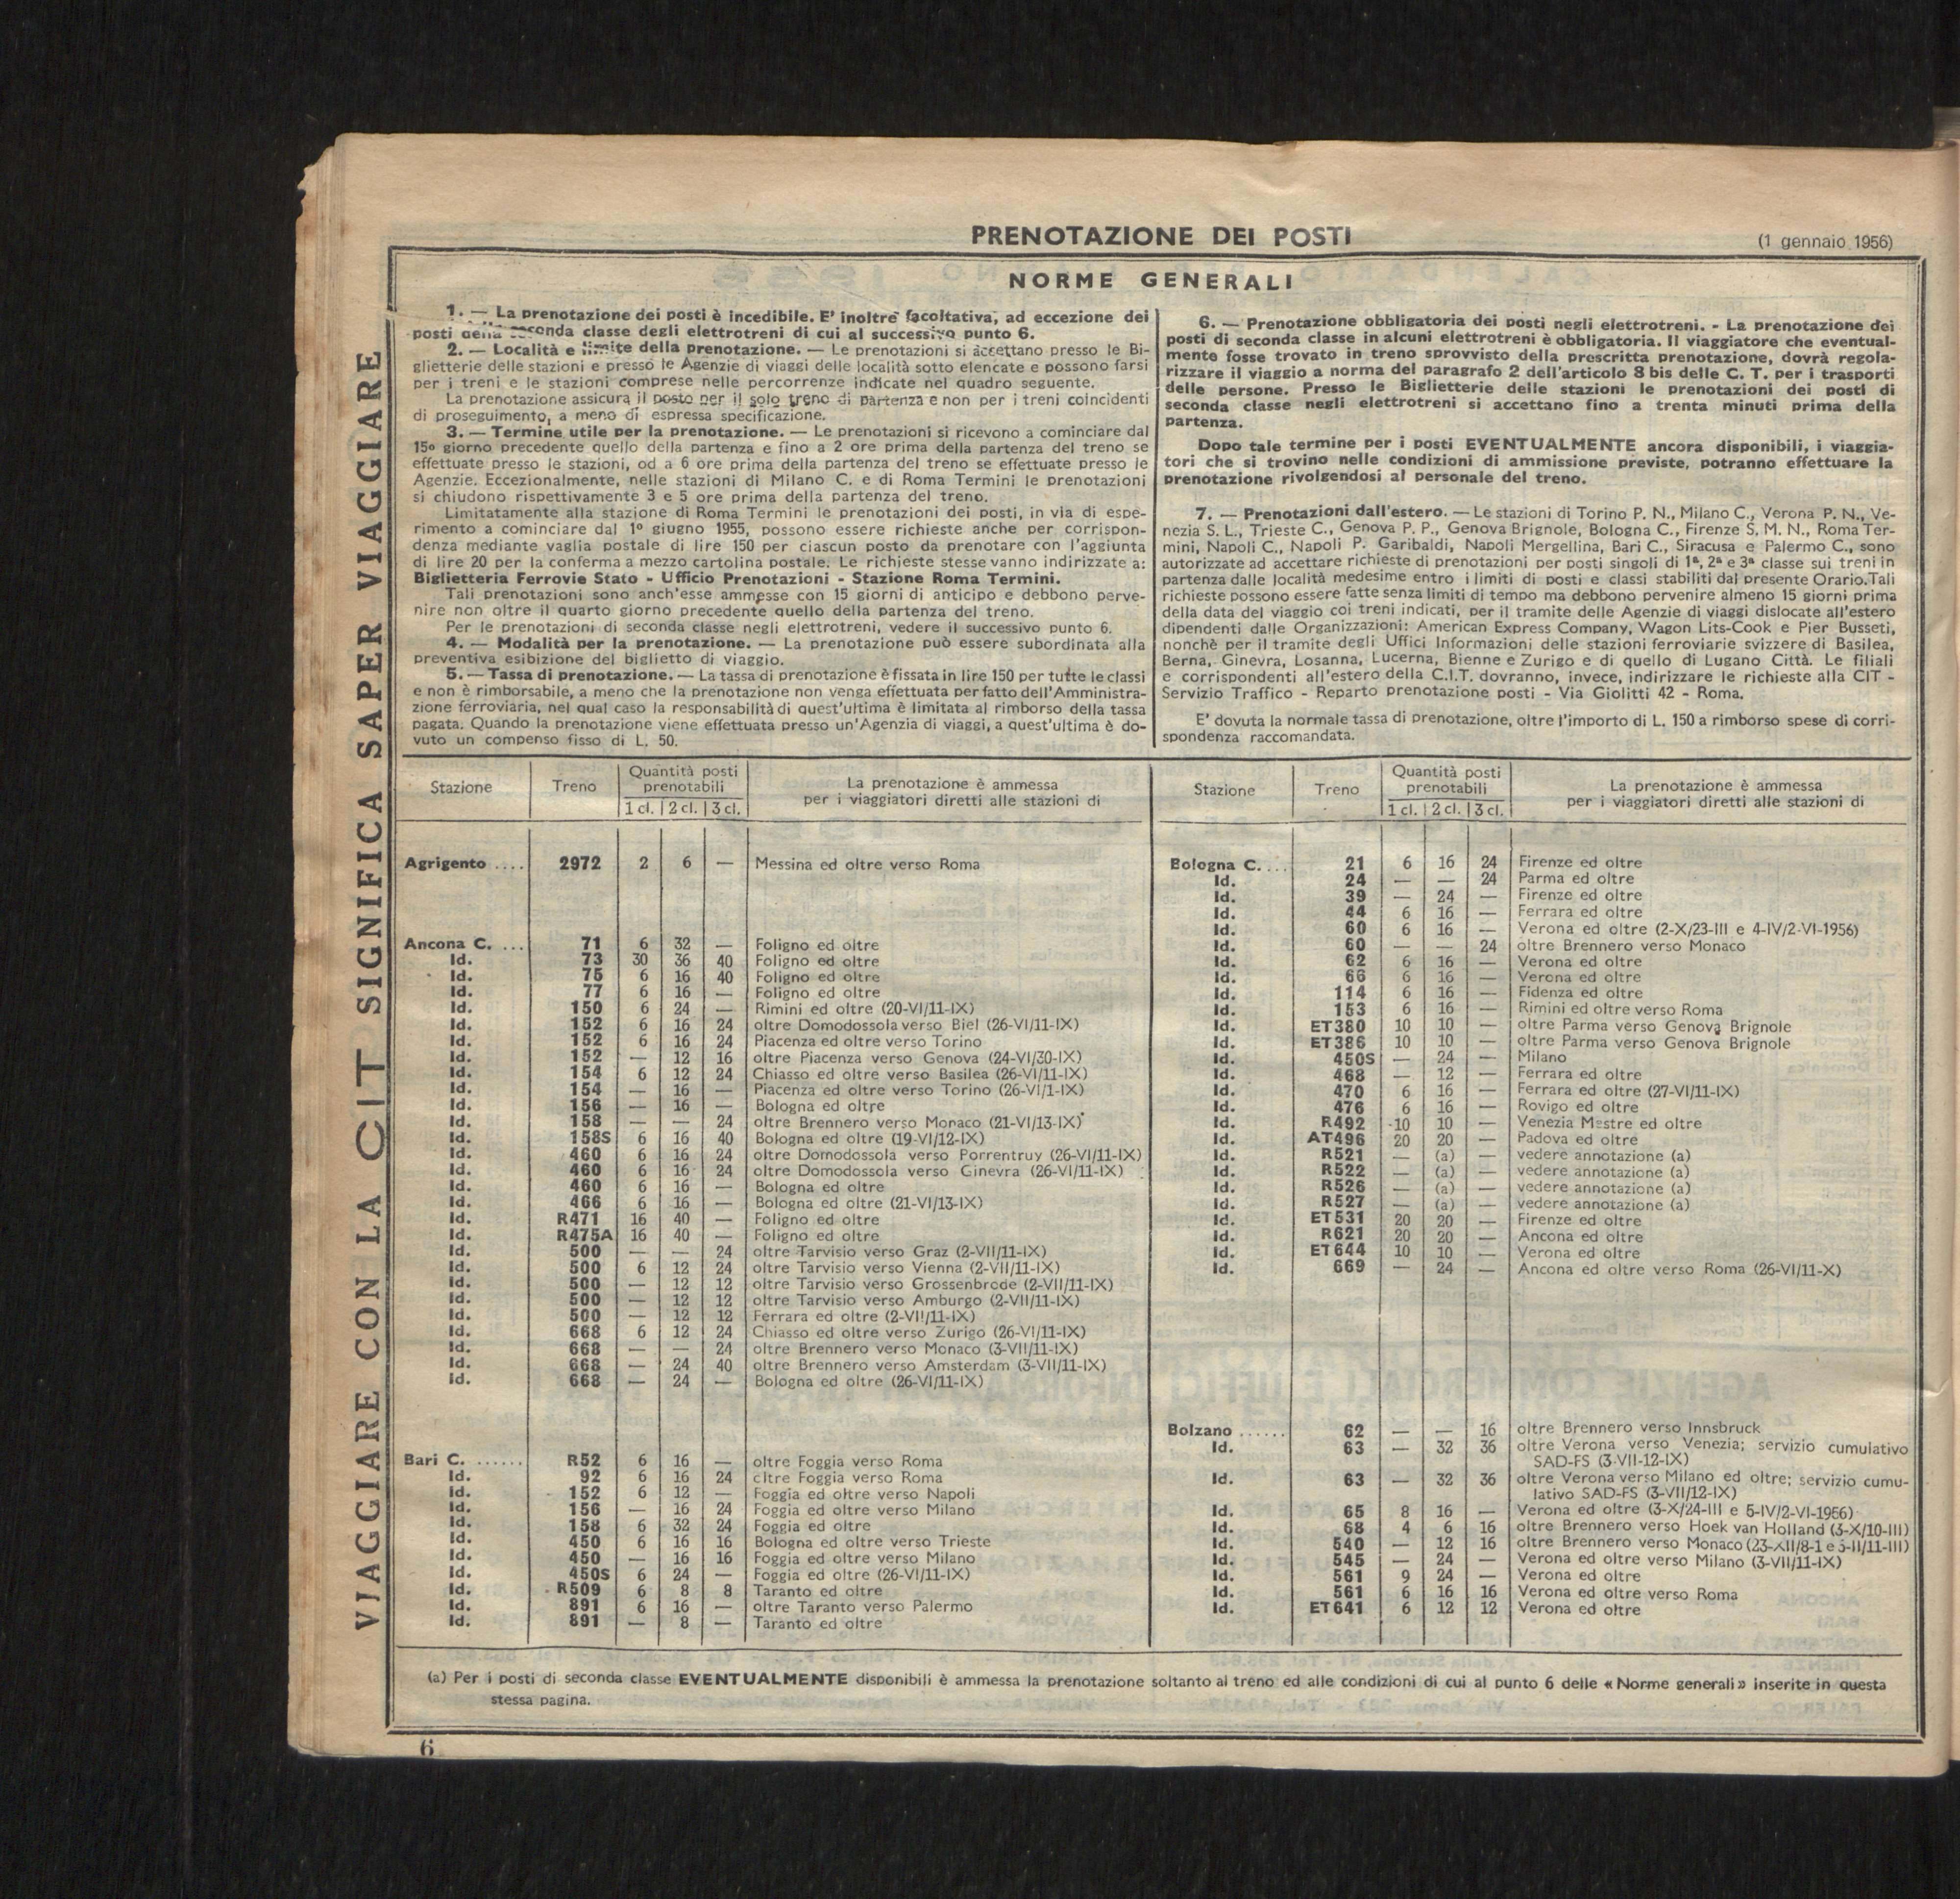 PRENOTAZIONE DEI POSTI
(1 gennaio 1956)
NORME GENERALI
1. — La prenotazione dei posti è incedibile. E' inoltre facoltativa, ad eccezione dei
posti della seconda classe degli elettrotreni di cui al successivo punto 6.
2. — Località e limite della prenotazione. — Le prenotazioni si accettano presso le Bi-
glietterie delle stazioni e presso le Agenzie di viaggi delle località sotto elencate e possono farsi
per i treni e le stazioni comprese nelle percorrenze indicate nel quadro seguente.
La prenotazione assicura il posto per il solo treno di partenza e non per i treni coincidenti
di proseguimento, a meno di espressa specificazione.
3. — Termine utile per la prenotazione. — Le prenotazioni si ricevono a cominciare dal
15º giorno precedente quello della partenza e fino a 2 ore prima della partenza del treno se
effettuate presso le stazioni, od a 6 ore prima della partenza del treno se effettuate presso le
Agenzie. Eccezionalmente, nelle stazioni di Milano C. e di Roma Termini le prenotazioni
si chiudono rispettivamente 3 e 5 ore prima della partenza del treno.
Limitatamente alla stazione di Roma Termini le prenotazioni dei posti, in via di espe-
rimento a cominciare dal 1º giugno 1955, possono essere richieste anche per corrispon-
denza mediante vaglia postale di lire 150 per ciascun posto da prenotare con l'aggiunta
di lire 20 per la conferma a mezzo cartolina postale. Le richieste stesse vanno indirizzate a:
Biglietteria Ferrovie Stato - Ufficio Prenotazioni - Stazione Roma Termini.
Tali prenotazioni sono anch'esse ammesse con 15 giorni di anticipo e debbono perve-
nire non oltre il quarto giorno precedente quello della partenza del treno.
Per le prenotazioni di seconda classe negli elettrotreni, vedere il successivo punto 6.
4. — Modalità per la prenotazione. — La prenotazione può essere subordinata alla
preventiva esibizione del biglietto di viaggio.
5. — Tassa di prenotazione. — La tassa di prenotazione è fissata in lire 150 per tutte le classi
e non è rimborsabile, a meno che la prenotazione non venga effettuata per fatto dell'Amministra-
zione ferroviaria, nel qual caso la responsabilità di quest'ultima è limitata al rimborso della tassa
pagata. Quando la prenotazione viene effettuata presso un'Agenzia di viaggi, a quest'ultima è do-
vuto un compenso fisso di L. 50.
6. — Prenotazione obbligatoria dei posti negli elettrotreni. - La prenotazione dei
posti di seconda classe in alcuni elettrotreni è obbligatoria. Il viaggiatore che eventual-
mente fosse trovato in treno sprovvisto della prescritta prenotazione, dovrà regola-
rizzare il viaggio a norma del paragrafo 2 dell'articolo 8 bis delle C. T. per i trasporti
delle persone. Presso le Biglietterie delle stazioni le prenotazioni dei posti di
seconda classe negli elettrotreni si accettano fino a trenta minuti prima della
partenza.
Dopo tale termine per i posti EVENTUALMENTE ancora disponibili, i viaggia-
tori che si trovino nelle condizioni di ammissione previste, potranno effettuare la
prenotazione rivolgendosi al personale del treno.
7. — Prenotazioni dall'estero. — Le stazioni di Torino P. N., Milano C., Verona P. N., Ve-
nezia S. L., Trieste C., Genova P. P., Genova Brignole, Bologna C., Firenze S. M. N., Roma Ter-
mini, Napoli C., Napoli P. Garibaldi, Napoli Mergellina, Bari C., Siracusa e Palermo C., sono
autorizzate ad accettare richieste di prenotazioni per posti singoli di 1ª, 2ª e 3ª classe sui treni in
partenza dalle località medesime entro i limiti di posti e classi stabiliti dal presente Orario. Tali
richieste possono essere fatte senza limiti di tempo ma debbono pervenire almeno 15 giorni prima
della data del viaggio coi treni indicati, per il tramite delle Agenzie di viaggi dislocate all'estero
dipendenti dalle Organizzazioni: American Express Company, Wagon Lits-Cook e Pier Busseti,
nonchè per il tramite degli Uffici Informazioni delle stazioni ferroviarie svizzere di Basilea,
Berna, Ginevra, Losanna, Lucerna, Bienne e Zurigo e di quello di Lugano Città. Le filiali
e corrispondenti all'estero della C.I.T. dovranno, invece, indirizzare le richieste alla CIT -
Servizio Traffico - Reparto prenotazione posti - Via Giolitti 42 - Roma.
E' dovuta la normale tassa di prenotazione, oltre l'importo di L. 150 a rimborso spese di corri-
spondenza raccomandata.
Stazione Treno Quantità posti prenotabili 1 cl. 2 cl. 3 cl. La prenotazione è ammessa per i viaggiatori diretti alle stazioni di
Agrigento .... 2972 2 6 — Messina ed oltre verso Roma
Ancona C. ... 71 6 32 — Foligno ed oltre
Id. 73 30 36 40 Foligno ed oltre
Id. 75 6 16 40 Foligno ed oltre
Id. 77 6 16 — Foligno ed oltre
Id. 150 6 24 — Rimini ed oltre (20-VI/11-IX)
Id. 152 6 16 24 oltre Domodossola verso Biel (26-VI/11-IX)
Id. 152 6 16 24 Piacenza ed oltre verso Torino
Id. 152 — 12 16 oltre Piacenza verso Genova (24-VI/30-IX)
Id. 154 6 12 24 Chiasso ed oltre verso Basilea (26-VI/11-IX)
Id. 154 — 16 — Piacenza ed oltre verso Torino (26-VI/1-IX)
Id. 156 — 16 — Bologna ed oltre
Id. 158 — — 24 oltre Brennero verso Monaco (21-VI/13-IX)
Id. 158S 6 16 40 Bologna ed oltre (19-VI/12-IX)
Id. 460 6 16 24 oltre Domodossola verso Porrentruy (26-VI/11-IX)
Id. 460 6 16 24 oltre Domodossola verso Ginevra (26-VI/11-IX)
Id. 460 6 16 — Bologna ed oltre
Id. 466 6 16 — Bologna ed oltre (21-VI/13-IX)
Id. R471 16 40 — Foligno ed oltre
Id. R475A 16 40 — Foligno ed oltre
Id. 500 — — 24 oltre Tarvisio verso Graz (2-VII/11-IX)
Id. 500 6 12 24 oltre Tarvisio verso Vienna (2-VII/11-IX)
Id. 500 — 12 12 oltre Tarvisio verso Grossenbrode (2-VII/11-IX)
Id. 500 — 12 12 oltre Tarvisio verso Amburgo (2-VII/11-IX)
Id. 500 — 12 12 Ferrara ed oltre (2-VII/11-IX)
Id. 668 6 12 24 Chiasso ed oltre verso Zurigo (26-VI/11-IX)
Id. 668 — — 24 oltre Brennero verso Monaco (3-VII/11-IX)
Id. 668 — 24 40 oltre Brennero verso Amsterdam (3-VII/11-IX)
Id. 668 — 24 — Bologna ed oltre (26-VI/11-IX)
Bari C. ...... R52 6 16 — oltre Foggia verso Roma
Id. 92 6 16 24 oltre Foggia verso Roma
Id. 152 6 12 — Foggia ed oltre verso Napoli
Id. 156 — 16 24 Foggia ed oltre verso Milano
Id. 158 6 32 24 Foggia ed oltre
Id. 450 6 16 16 Bologna ed oltre verso Trieste
Id. 450 — 16 16 Foggia ed oltre verso Milano
Id. 450S 6 24 — Foggia ed oltre (26-VI/11-IX)
Id. R509 6 8 8 Taranto ed oltre
Id. 891 6 16 — oltre Taranto verso Palermo
Id. 891 — 8 — Taranto ed oltre
Stazione Treno Quantità posti prenotabili 1 cl. 2 cl. 3 cl. La prenotazione è ammessa per i viaggiatori diretti alle stazioni di
Bologna C. ... 21 6 16 24 Firenze ed oltre
Id. 24 — — 24 Parma ed oltre
Id. 39 — 24 — Firenze ed oltre
Id. 44 6 16 — Ferrara ed oltre
Id. 60 6 16 — Verona ed oltre (2-X/23-III e 4-IV/2-VI-1956)
Id. 60 — — 24 oltre Brennero verso Monaco
Id. 62 6 16 — Verona ed oltre
Id. 66 6 16 — Verona ed oltre
Id. 114 6 16 — Fidenza ed oltre
Id. 153 6 16 — Rimini ed oltre verso Roma
Id. ET380 10 10 — oltre Parma verso Genova Brignole
Id. ET386 10 10 — oltre Parma verso Genova Brignole
Id. 450S — 24 — Milano
Id. 468 — 12 — Ferrara ed oltre
Id. 470 6 16 — Ferrara ed oltre (27-VI/11-IX)
Id. 476 6 16 — Rovigo ed oltre
Id. R492 10 10 — Venezia Mestre ed oltre
Id. AT496 20 20 — Padova ed oltre
Id. R521 — (a) — vedere annotazione (a)
Id. R522 — (a) — vedere annotazione (a)
Id. R526 — (a) — vedere annotazione (a)
Id. R527 — (a) — vedere annotazione (a)
Id. ET531 20 20 — Firenze ed oltre
Id. R621 20 20 — Ancona ed oltre
Id. ET644 10 10 — Verona ed oltre
Id. 669 — 24 — Ancona ed oltre verso Roma (26-VI/11-X)
Bolzano ...... 62 — — 16 oltre Brennero verso Innsbruck
Id. 63 — 32 36 oltre Verona verso Venezia; servizio cumulativo
SAD-FS (3-VII-12-IX)
Id. 63 — 32 36 oltre Verona verso Milano ed oltre; servizio cumu-
lativo SAD-FS (3-VII/12-IX)
Id. 65 8 16 — Verona ed oltre (3-X/24-III e 5-IV/2-VI-1956)
Id. 68 4 6 16 oltre Brennero verso Hoek van Holland (3-X/10-III)
Id. 540 — 12 16 oltre Brennero verso Monaco (23-XII/8-1 e 3-II/11-III)
Id. 545 — 24 — Verona ed oltre verso Milano (3-VII/11-IX)
Id. 561 9 24 — Verona ed oltre
Id. 561 6 16 16 Verona ed oltre verso Roma
Id. ET641 6 12 12 Verona ed oltre
(a) Per i posti di seconda classe EVENTUALMENTE disponibili è ammessa la prenotazione soltanto al treno ed alle condizioni di cui al punto 6 delle «Norme generali» inserite in questa
stessa pagina.
6
VIAGGIARE CON LA CIT SIGNIFICA SAPER VIAGGIARE